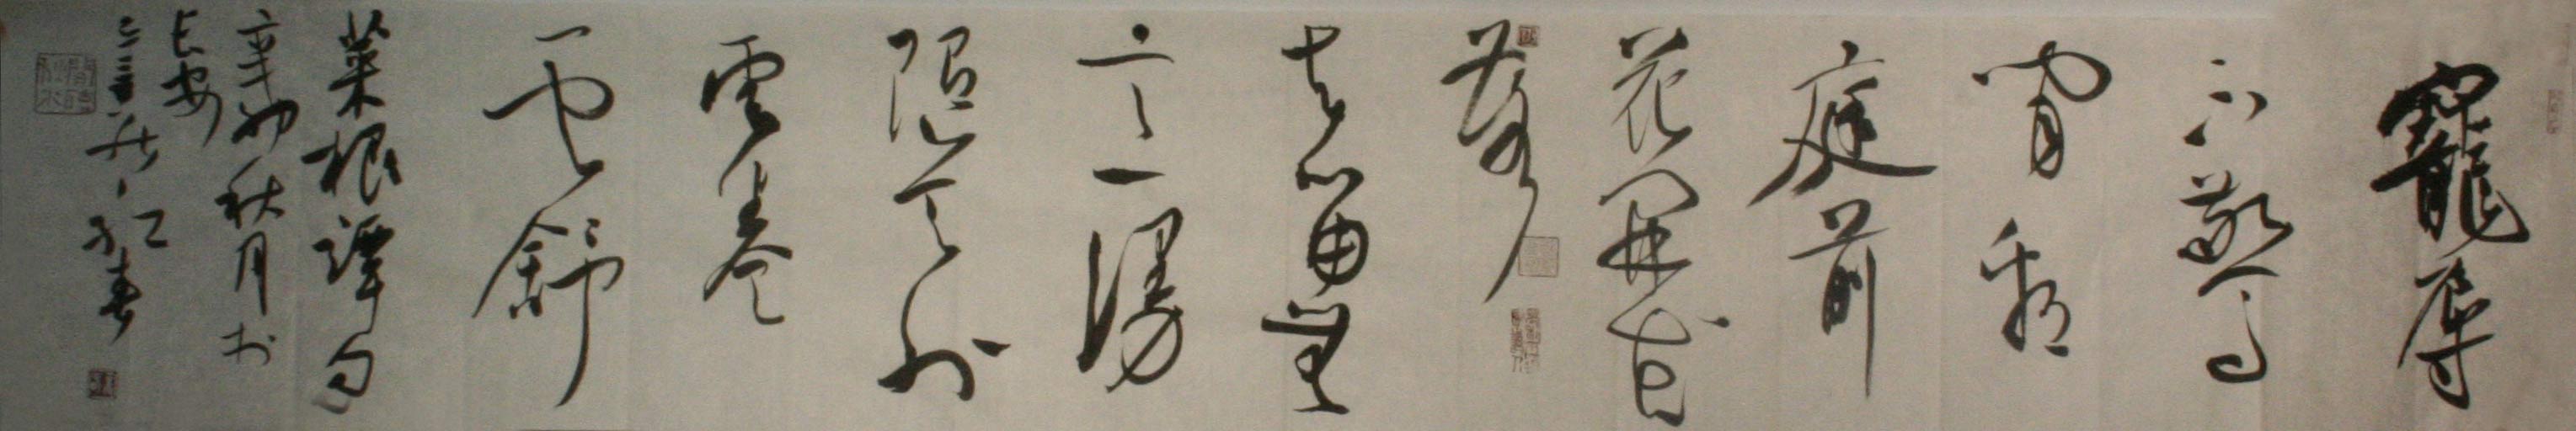 寵辱
不驚
閒看
庭前
花開花
落
去留無
意漫
隨天外
雲卷
雲舒
菜根譚句
辛卯秋月於
長安